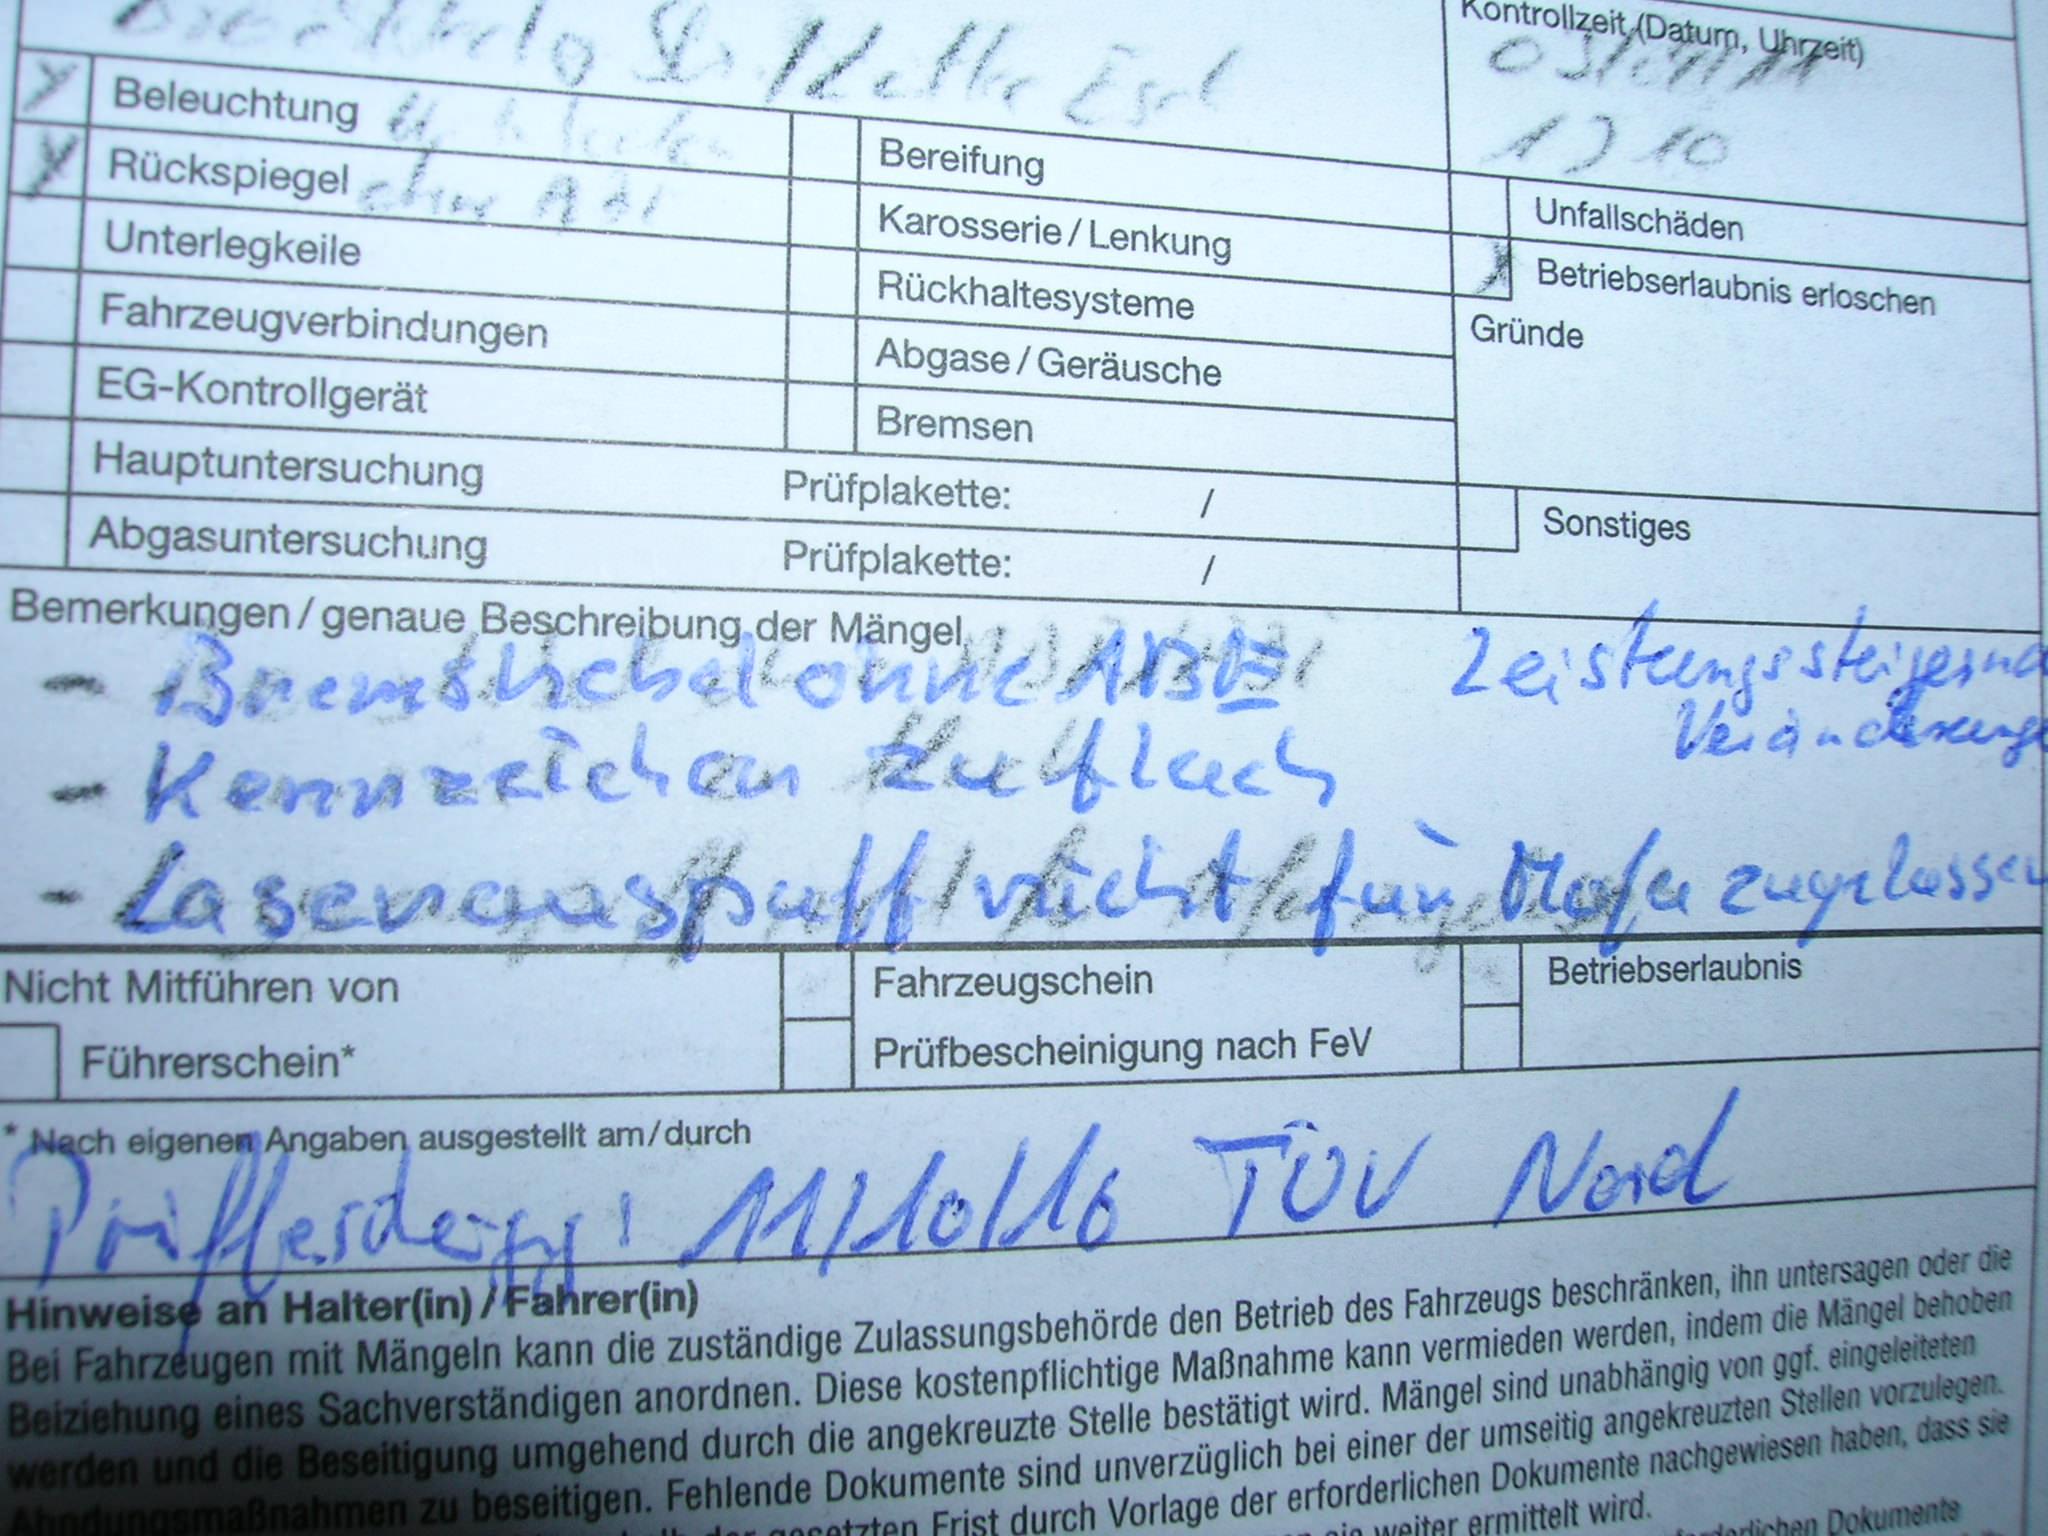 Kontrollzeit (Datum, Uhrzeit)
Str.
Beleuchtung
Rückspiegel
Unterlegkeile
Fahrzeugverbindungen
EG-Kontrollgerät
Hauptuntersuchung Prüfplakette: /
Abgasuntersuchung Prüfplakette: /
Bereifung
Karosserie / Lenkung
Rückhaltesysteme
Abgase / Geräusche
Bremsen
Unfallschäden
Betriebserlaubnis erloschen
Gründe
Sonstiges
Bemerkungen / genaue Beschreibung der Mängel
- Bremshebel ohne ABE
Leistungssteigernd
Veränderunge
- Kennzeichen zu flach
- Laserauspuff nicht für Mofa zugelassen
Nicht Mitführen von
Führerschein*
Fahrzeugschein
Prüfbescheinigung nach FeV
Betriebserlaubnis
* Nach eigenen Angaben ausgestellt am / durch
11/10/16 TÜV Nord
Hinweise an Halter(in) / Fahrer(in)
Bei Fahrzeugen mit Mängeln kann die zuständige Zulassungsbehörde den Betrieb des Fahrzeugs beschränken, ihn untersagen oder die
Beiziehung eines Sachverständigen anordnen. Diese kostenpflichtige Maßnahme kann vermieden werden, indem die Mängel behoben
werden und die Beseitigung umgehend durch die angekreuzte Stelle bestätigt wird. Mängel sind unabhängig von ggf. eingeleiteten
Ahndungsmaßnahmen zu beseitigen. Fehlende Dokumente sind unverzüglich bei einer der umseitig angekreuzten Stellen vorzulegen.
gesetzten Frist durch Vorlage der erforderlichen Dokumente nachgewiesen haben, dass sie
weiter ermittelt wird.
Dokumente